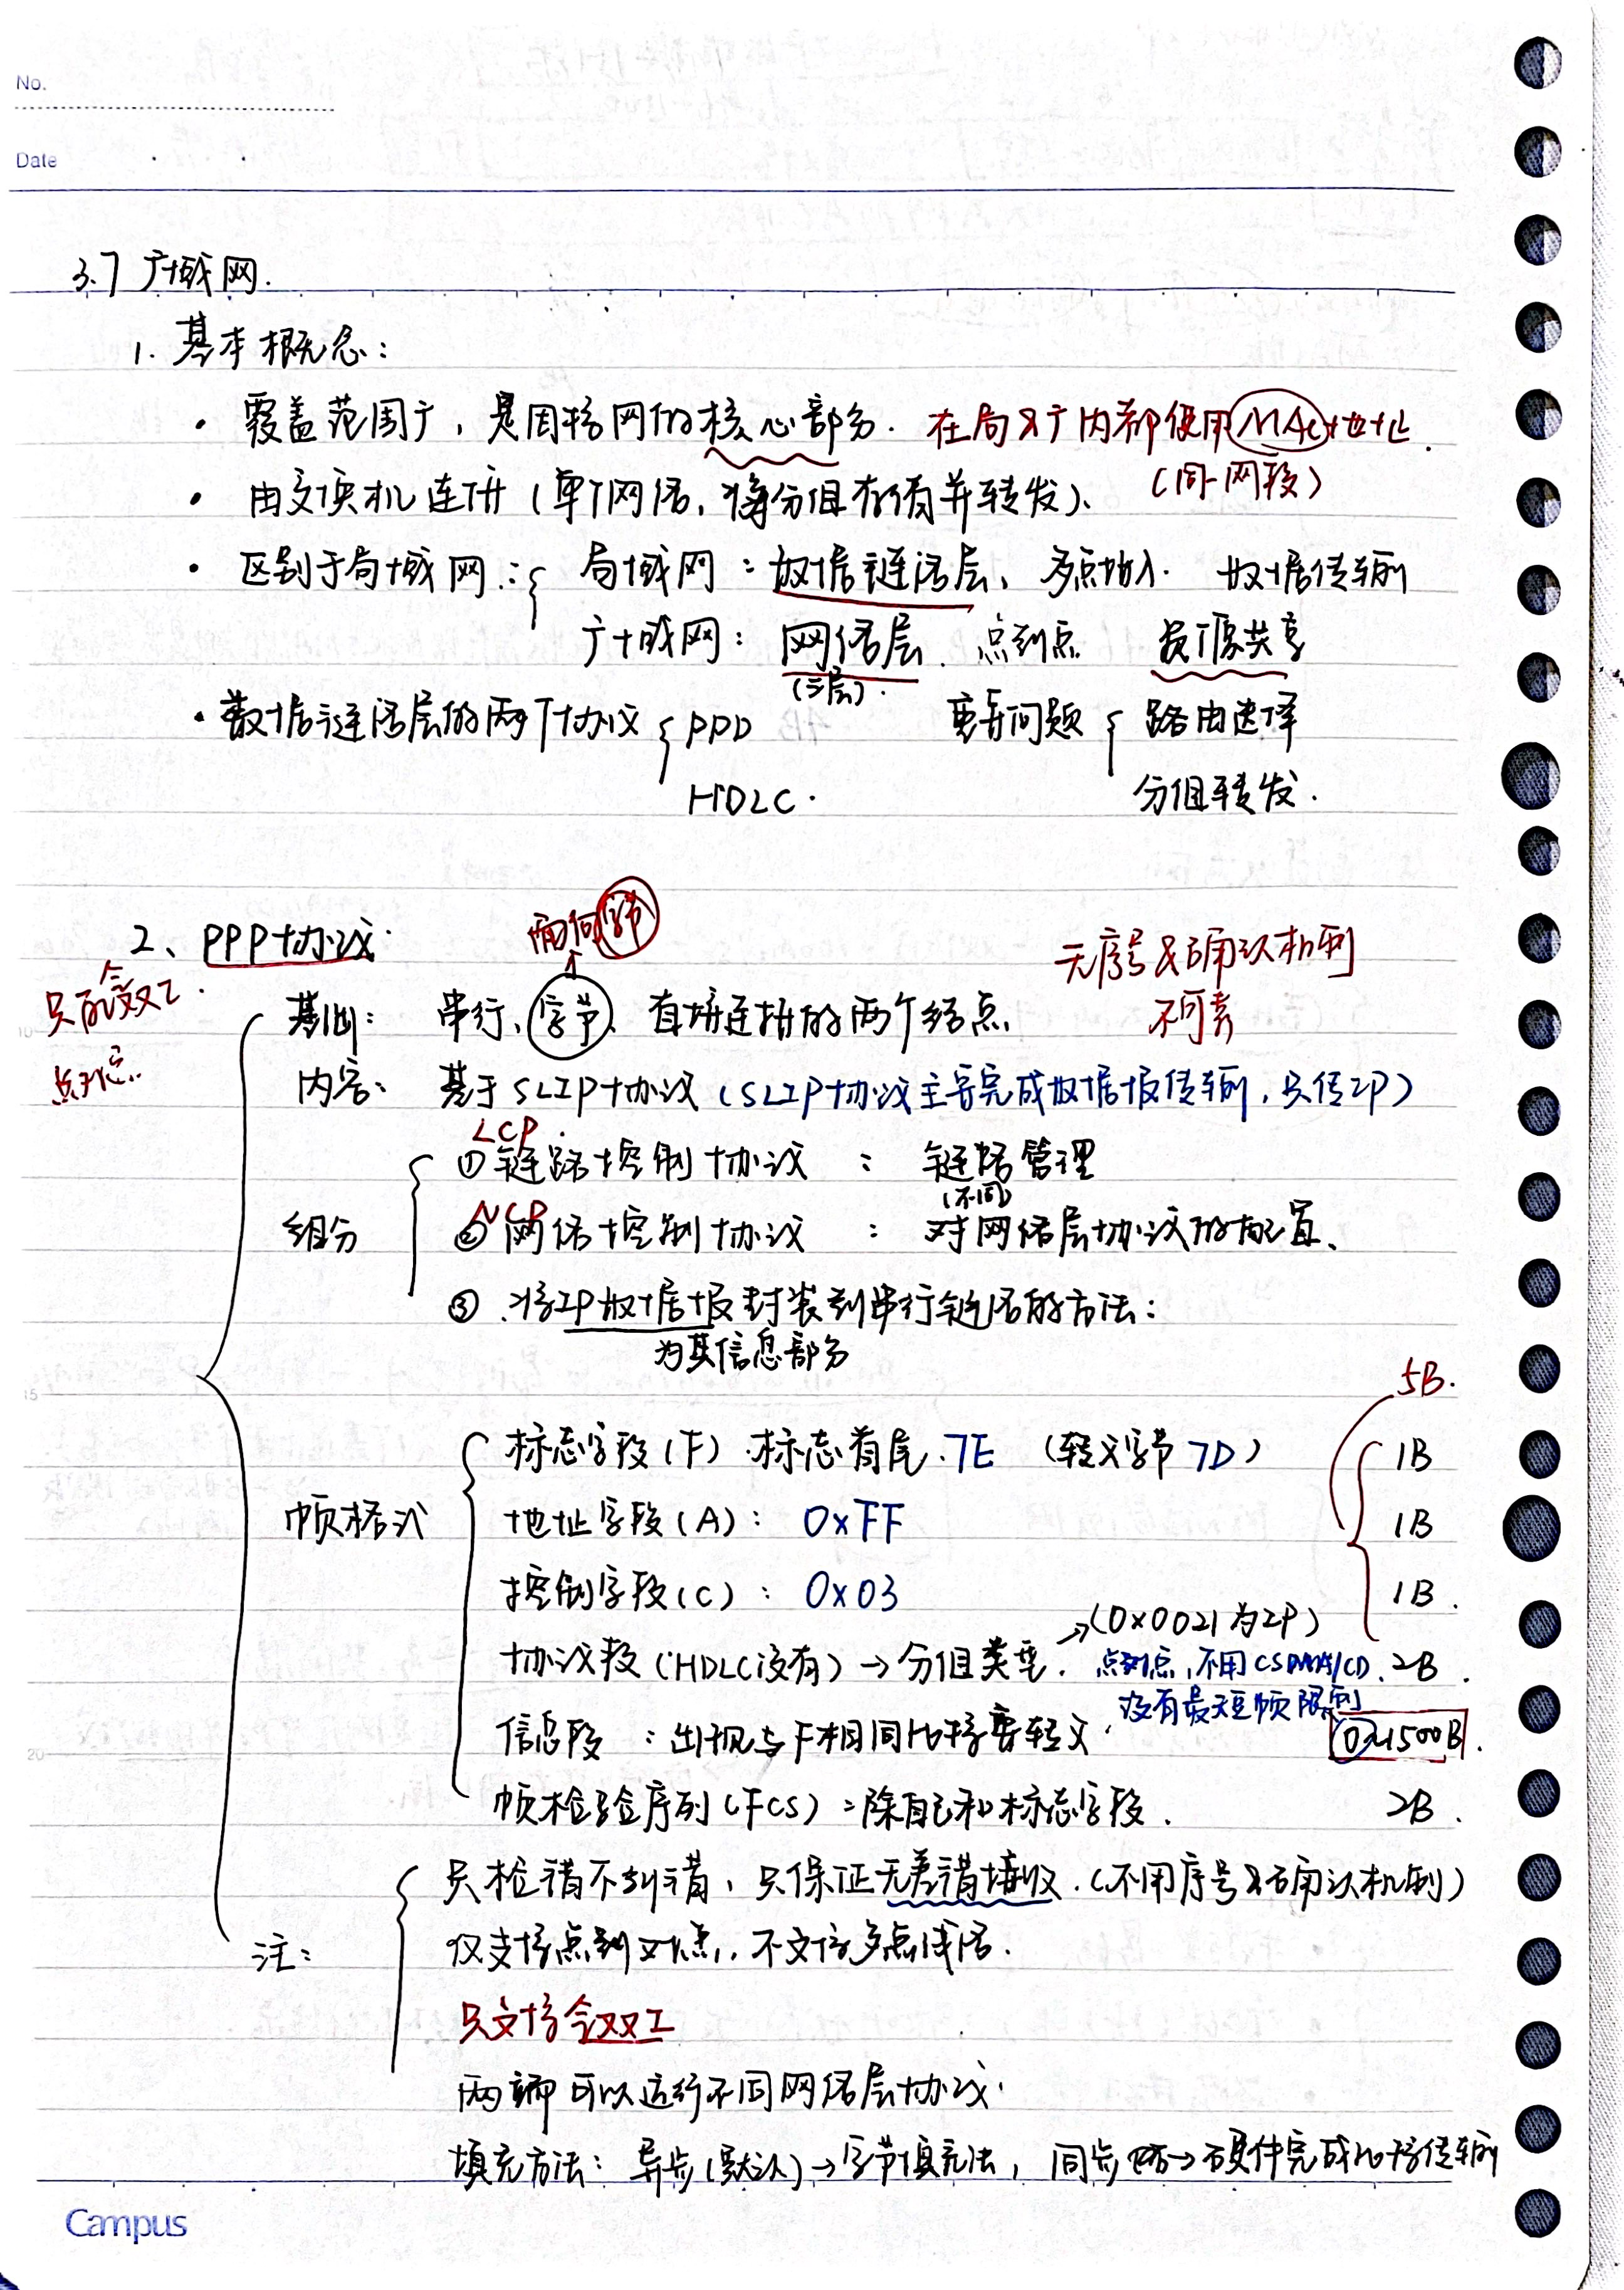 No.
Date
3.7 广域网.
1. 基本概念:
· 覆盖范围广, 是因特网的核心部分. 在局&广内都使用MAC地址.
(同一网段)
· 由交换机连接 (单个网络, 将分组存储并转发).
· 区别于局域网: { 局域网: 数据链路层、多点接入. 数据传输
广域网: 网络层. 点到点 资源共享
(三层).
· 数据链路层的两个协议 { PPP 重要问题 { 路由选择
HDLC. 分组转发.
面向字节
2、PPP协议.
无序号&确认机制
不可靠
只能全双工.
点对点.
基出: 串行、字节、直接连接的两个结点
内容: 基于SLIP协议 (SLIP协议主要完成数据报传输, 只传IP)
LCP.
① 链路控制协议 : 链路管理
(不同)
NCP
组分 ② 网络控制协议 : 对网络层协议的配置、
③ .将IP数据报封装到串行链路的方法:
为其信息部分
5B.
标志字段(F) .标志首尾. 7E (转义字节 7D) 1B
帧格式 地址字段(A): 0xFF 1B
控制字段(C): 0x03 1B.
→(0x0021为IP)
协议段 (HDLC没有) → 分组类型. 点对点, 不用CSMA/CD. 2B.
没有最短帧限制
信息段 : 出现与F相同比特要转义. 0~1500B.
帧检验序列(FCS): 除自己和标志字段. 2B.
只检错不纠错, 只保证无差错接收. (不用序号&确认机制)
注: 仅支持点到点, 不支持多点线路.
只支持全双工
两端可以运行不同网络层协议.
填充方法: 异步(默认)→字节填充法, 同步→硬件完成比特传输
Campus